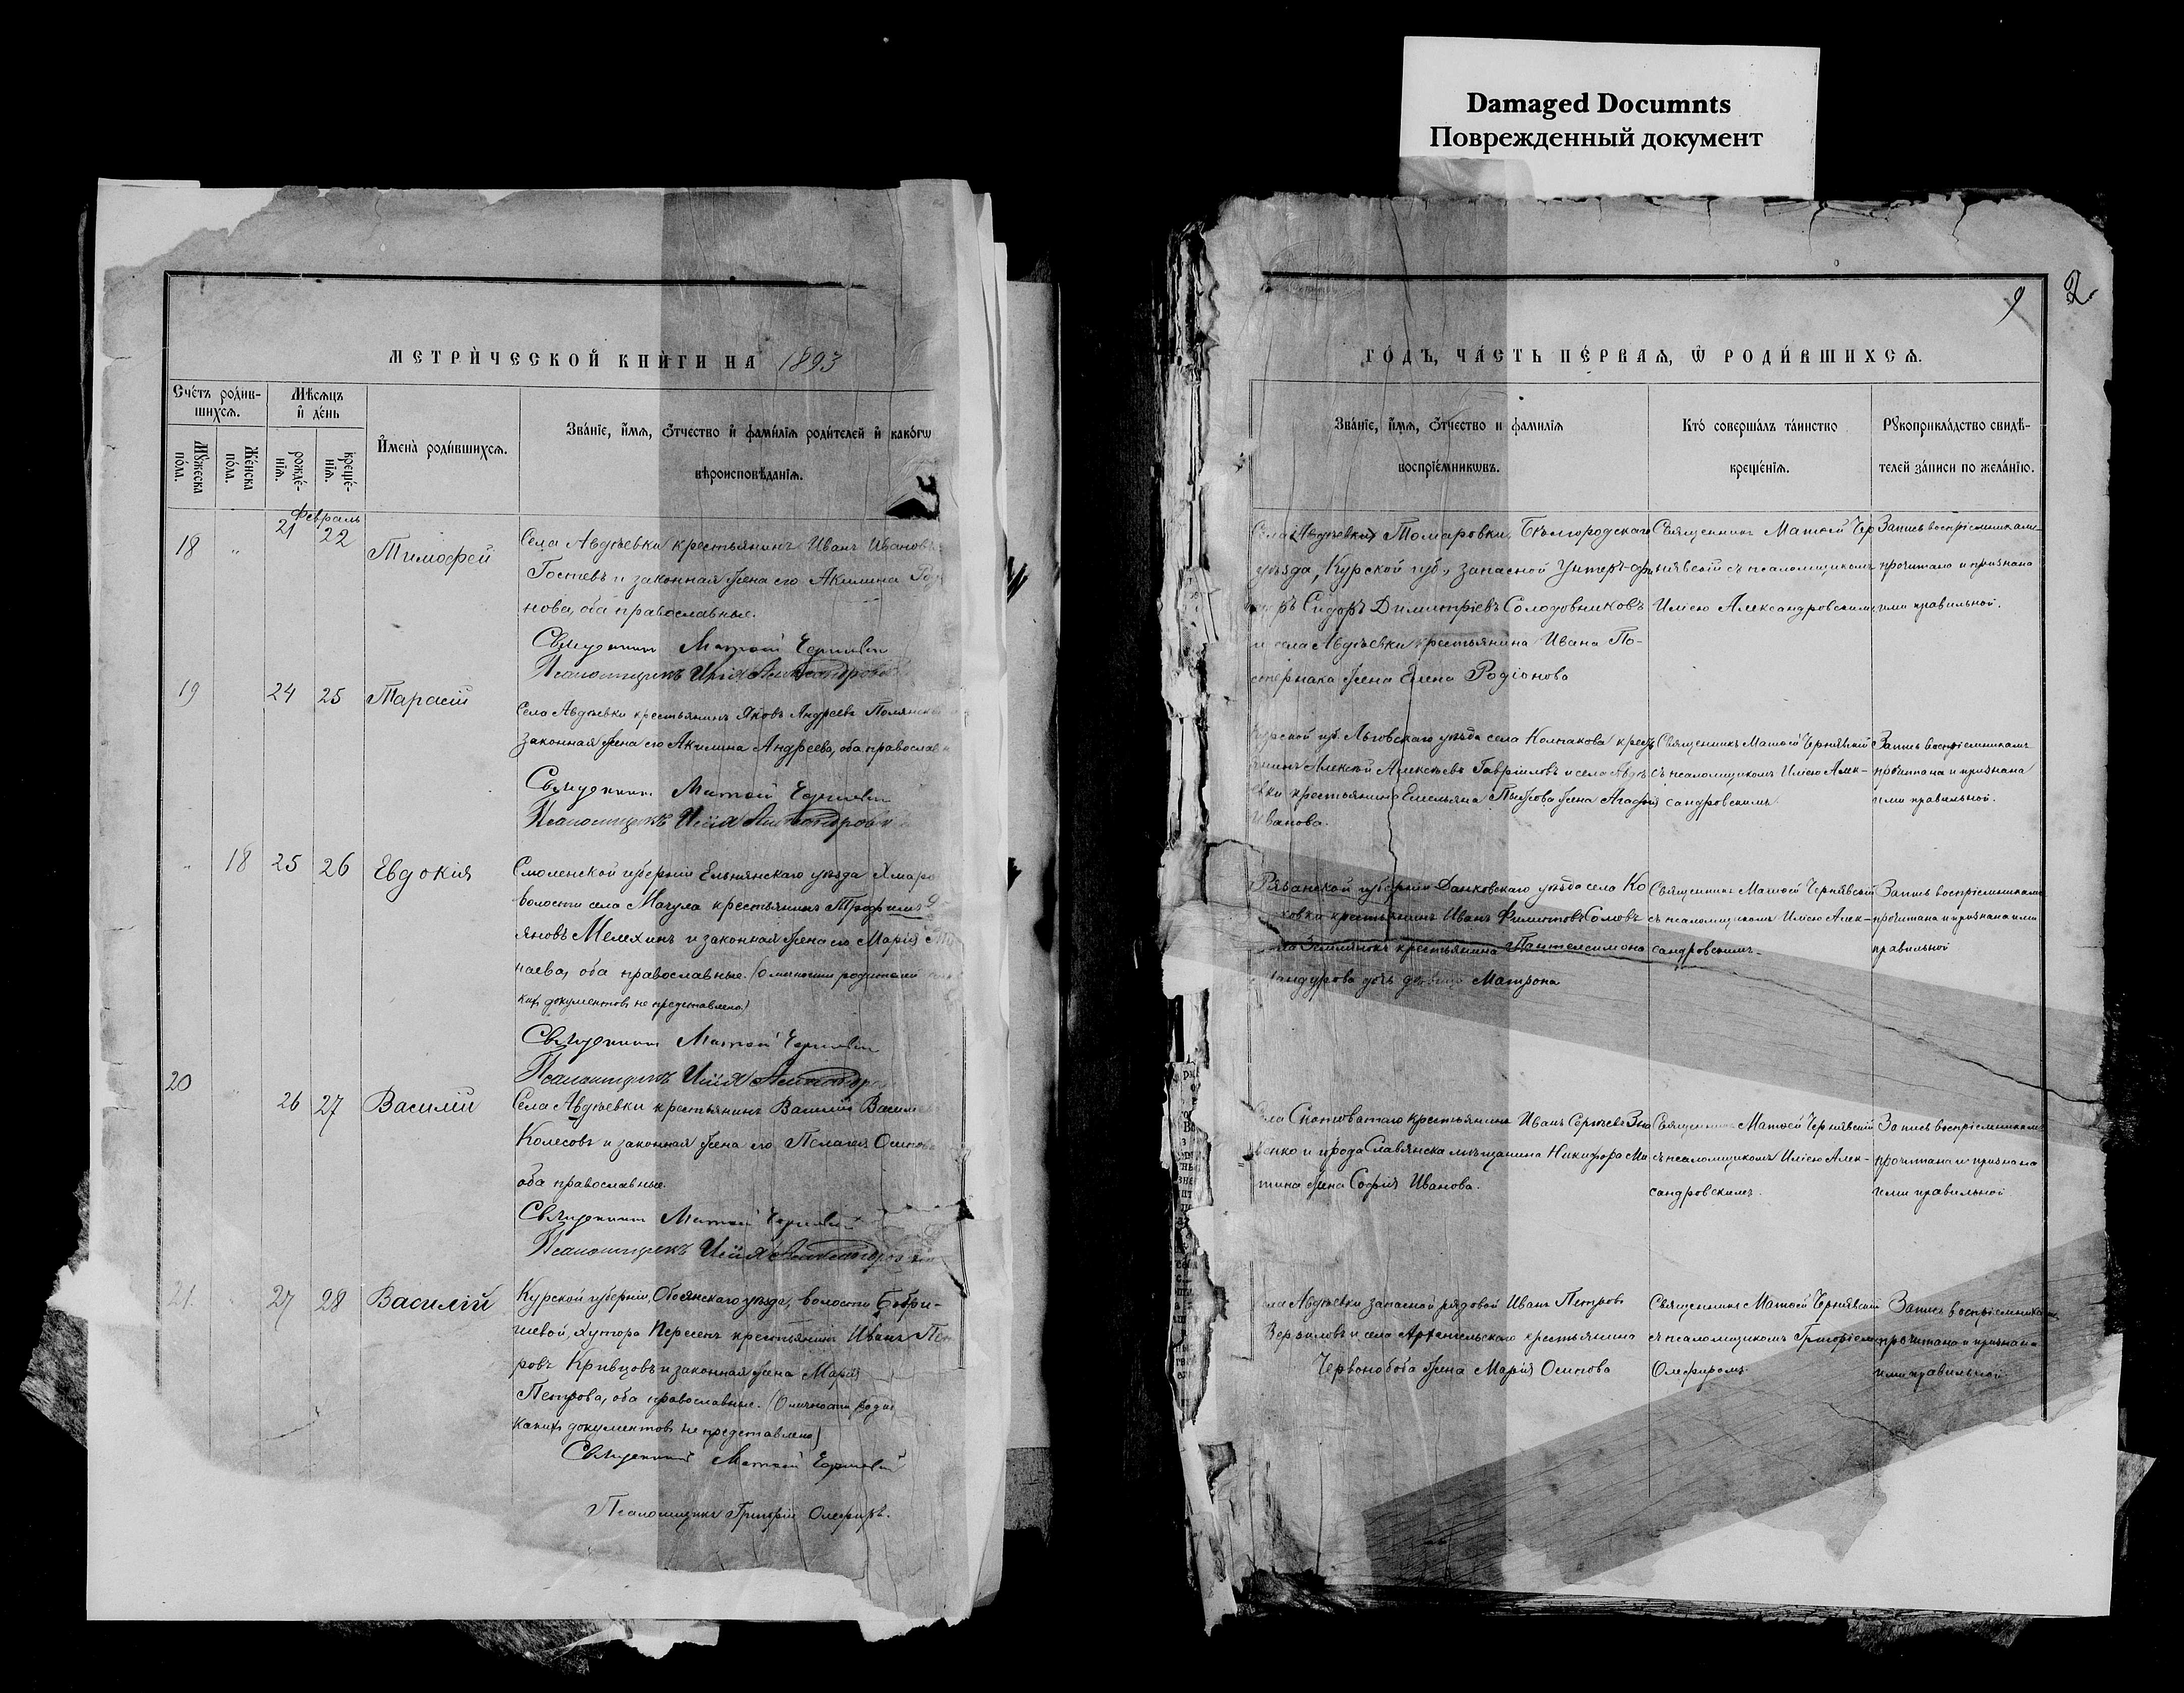 Damaged Documnts
Поврежденный документ
2
9
МЕТРИЧЕСКОЙ КНИГИ НА 1893
Счетъ родив-
шихся.
Мѣсяцъ
и день
Мужеска
пола.
Женска
пола.
рожде-
нія.
креще-
нія.
Имена родившихся.
Званіе, имя, отчество и фамилія родителей и какогѡ
вѣроисповѣданія.
Февраль
18 " 21 22 Тимофей
Села Авдѣевки крестьянинъ Иванъ Ивановъ
Гостевъ и законная жена его Акилина
нова, оба православные.
Священникъ Матѳей Чернявскій
Псаломщикъ Илія Александровскій
19 24 25 Тарасій
Села Авдѣевки крестьянинъ Яковъ Андреевъ
законная жена его Акилина Андреева, оба православн
Священникъ Матѳей Чернявскій
Псаломщикъ Илія Александровскій
" 18 25 26 Евдокія
Смоленской губерніи Ельнянскаго уѣзда Хмаро
волости села Мачула крестьянинъ Трофимъ
яновъ Мелехинъ и законная жена его Марія
наева, оба православные. (О личности родителей
кихъ документовъ не представлено)
Священникъ Матѳей Чернявскій
Псаломщикъ Илія Александро
20 " 26 27 Василій
Села Авдѣевки крестьянинъ Василій Васил
Колесовъ и законная жена его Пелагея Осипова
оба православные.
Священникъ Матѳей Чернявскій
Псаломщикъ Илія Александровскій
21. " 27 28 Василій
Курской губерніи, Обоянскаго уѣзда, волости Бобри-
шевой, хутора Пересепъ крестьянинъ Иванъ Пет
ровъ Кривцовъ и законная жена Марія
Петрова, оба православные. (О личности роди
какихъ документовъ не представлено)
Священникъ Матѳей Чернявскій
Псаломщикъ Григорій Олефиръ.
ГОДЪ, ЧАСТЬ ПЕРВАЯ, Ѡ РОДИВШИХСЯ.
Званіе, имя, отчество и фамилія
воспріемникѡвъ.
Кто совершалъ таинство
крещенія.
Рукоприкладство свидѣ-
телей записи по желанію.
Села (Авдѣевки) Томаровки, Бѣлгородскаго
уѣзда, Курской губ., запасной унтеръ-офи
ръ Сидоръ Димитріевъ Солодовниковъ
и села Авдѣевки крестьянина Ивана По-
стернака жена Елена Родіонова
Священникъ Матѳей Чер
нявскій съ псаломщикомъ
Иліею Александровскимъ
Запись воспріемниками
прочитана и признана
ими правильной.
Курской губ. Льговскаго уѣзда села Колпакова крестья
нинъ Алексѣй Алексѣевъ Гавріиловъ и села Авдѣ
евки крестьянина Емельяна Пыжова жена Агафія
Иванова.
Священникъ Матѳей Чернявскій
съ псаломщикомъ Иліею Алек-
сандровскимъ
Запись воспріемниками
прочитана и признана
ими правильной.
Рязанской губерніи Данковскаго уѣзда села Ко
ковки крестьянинъ Иванъ Филиповъ Сомовъ
Землянокъ крестьянина Пантелеимона
дочь дѣвица Матрона
Священникъ Матѳей Чернявскій
съ псаломщикомъ Иліею Алек-
сандровскимъ
Запись воспріемниками
прочитана и признана ими
правильной
Села Скотоватаго крестьянинъ Иванъ Сергѣевъ
и города Славянска мѣщанина Никифора Ми
тина жена Софія Иванова.
Священникъ Матѳей Чернявскій
съ псаломщикомъ Иліею Алек-
сандровскимъ.
Запись воспріемниками
прочитана и признана
ими правильной
Села Авдѣевки запасной рядовой Иванъ Петровъ
и села Архангельскаго крестьянина
Червонобоба жена Марія Осипова
Священникъ Матѳей Чернявскій
съ псаломщикомъ Григоріемъ
Олефиромъ
Запись воспріемниками
прочитана и признана
ими правильной.